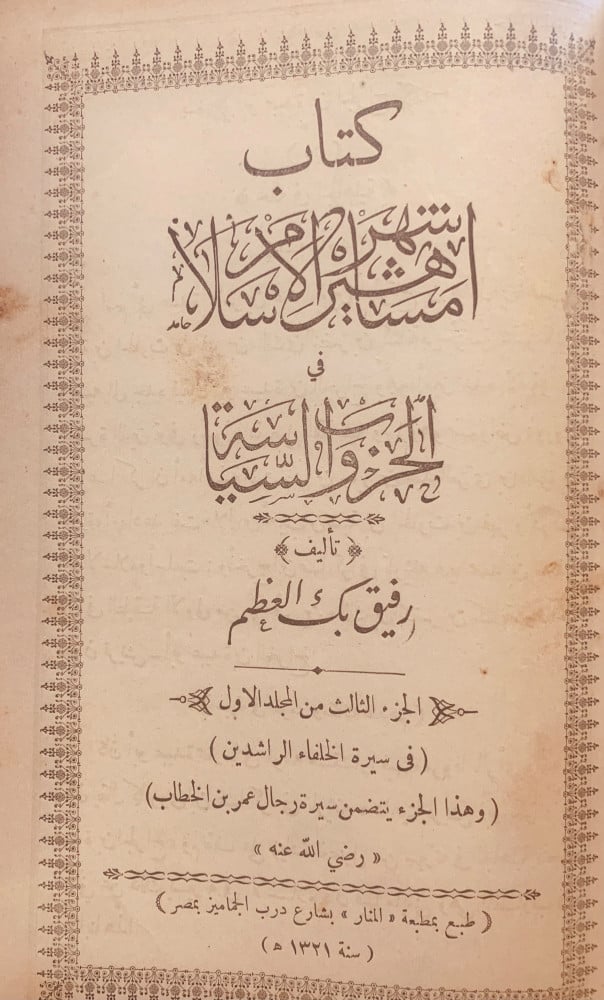 كتاب
اشهر مشاهير الاسلام
حامد
في
الحرب والسياسة
﴿ تأليف ﴾
رفيق بك العظم
الجزء الثالث من المجلد الاول
( فى سيرة الخلفاء الراشدين )
( وهذا الجزء يتضمن سيرة رجال عمر بن الخطاب )
« رضي الله عنه »
( طبع بمطبعة « المنار » بشارع درب الجماميز بمصر )
( سنة ١٣٢١ ه )